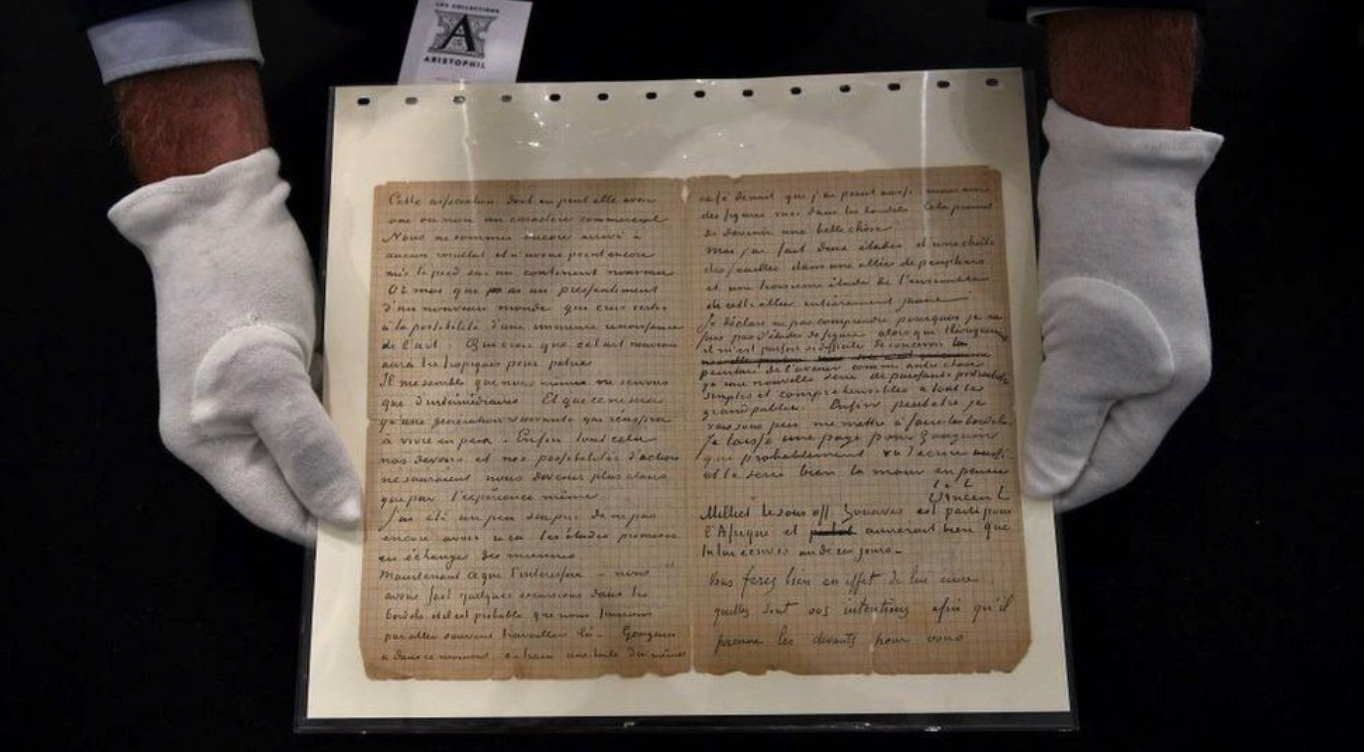 LES COLLECTIONS
A
ARISTOPHIL
Cette association dont on peut elle avoir
ou non un caractère commercial
Nous ne sommes encore arrivé à
aucun résultat et n'avons point encore
mis le pied sur un continent nouveau
Or moi que ai un pressentiment
d'un nouveau monde qui crois certes
à la possibilité d'une immense renaissance
de l'art. Qui crois que cet art nouveau
aura les tropiques pour patrie
Il me semble que nous mêmes ne servons
que d'intermédiaires Et que ce ne sera
qu'une génération suivante qui réussira
à vivre en paix. Enfin tout cela
nos devoirs et nos possibilités d'action
ne sauraient nous devenir plus clairs
que par l'expérience même
J'ai été un peu surpris de ne pas
encore avoir reçu les études promises
en échange des miennes
Maintenant ce que t'intéressera – nous
avons fait quelques excursions dans les
bordels et il est probable que nous finirons
par aller souvent travailler là – Gauguin
a dans ce moment en train une toile du même
café de nuit que j'ai peint aussi mais avec
des figures vues dans les bordels Cela promet
de devenir une belle chose
Moi j'ai fait deux études d'une chûte
des feuilles dans une allée de peupliers
et une troisième étude de l'ensemble
de cette allée entièrement jaune
Je déclare ne pas comprendre pourquoi je ne
fais pas d'études de figure alors que théoriquement
il m'est parfois si difficile de concevoir la
peinture de l'avenir comme autre chose
qu'une nouvelle série de puissants portraitistes
simples et compréhensibles à tout le
grand public. Enfin peut être je
vais sous peu me mettre à faire les bordels.
Je laisse une page pour Gauguin
qui probablement va t'écrire aussi
et te serre bien la main en pensée
t. à t.
Vincent
Milliet le sous off. Zouaves est parti pour
l'Afrique et aimerait bien que
tu lui écrives un de ces jours –
Vous ferez bien en effet de lui écrire
quelles sont vos intentions afin qu'il
prenne les devants pour vous